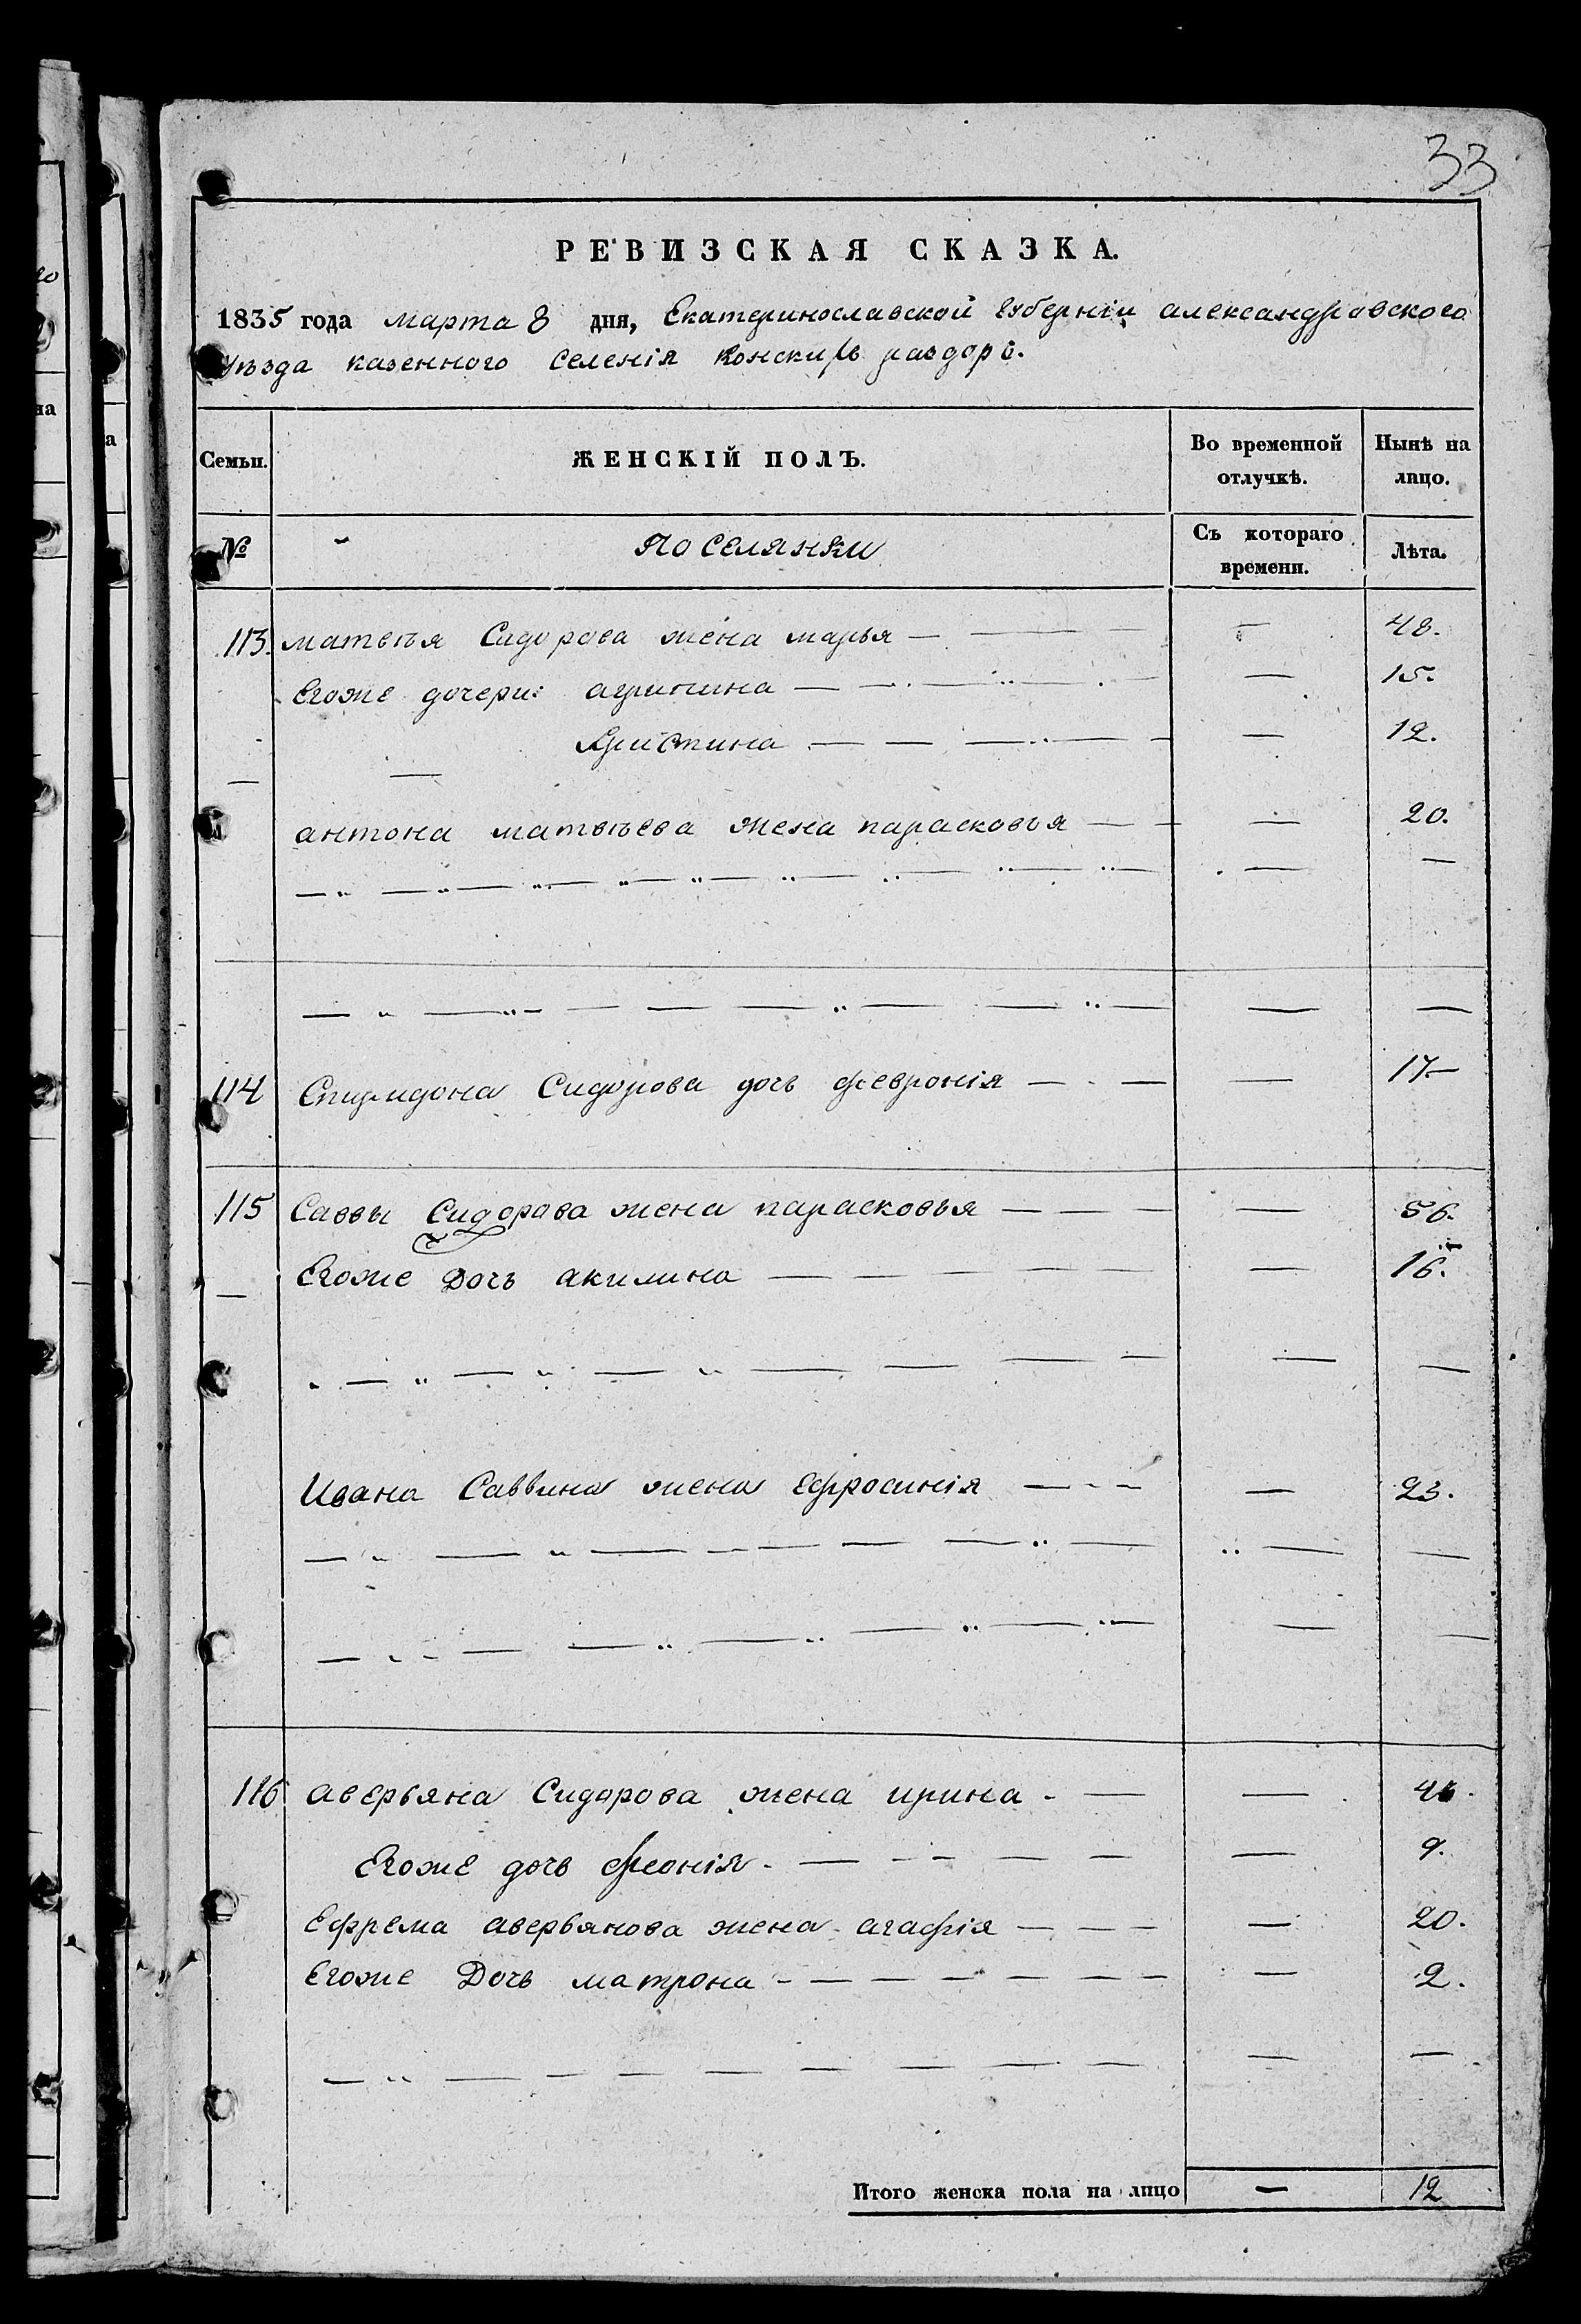 33
РЕВИЗСКАЯ СКАЗКА.
1835 года марта 8 дня, Екатеринославской губерніи александровского
уѣзда казенного селенія Конскихъ раздоръ.
Семьи. ЖЕНСКІЙ ПОЛЪ. Во временной отлучкѣ. Нынѣ на лицо.
№ поселянки Съ котораго времени. Лѣта.
113. матвѣя Сидорова жена марья — 48.
Егоже дочери: агрипина — 15.
Христина — 12.
антона матвѣева жена парасковья — 20.
114 Спиридона Сидорова дочь февронія — 17
115 Саввы Сидорова жена парасковья — 56.
Егоже Дочь акилина — 16.
Ивана Саввина жена Ефросинія — 23.
116 аверьяна Сидорова жена ирина —
Егоже дочь феонія — 9.
Ефрема аверьянова жена агафія — 20.
Егоже Дочь матрона — 2.
Итого женска пола на лицо — 12